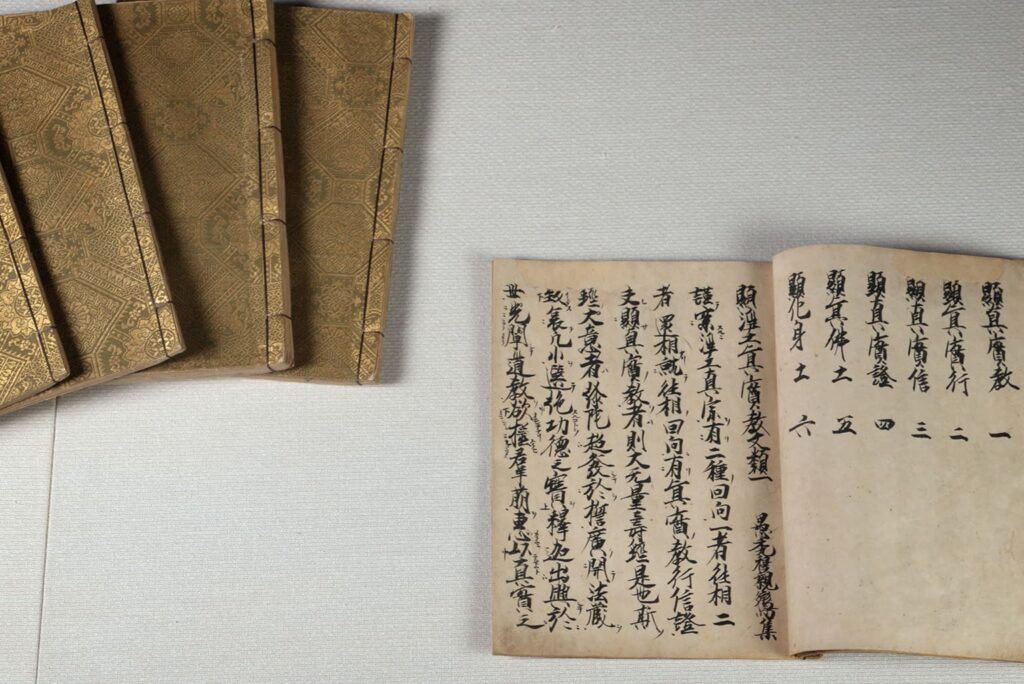 顯真實教 一
顯真實行 二
顯真實信 三
顯真實證 四
顯真佛土 五
顯化身土 六
顯淨土真實教文類一 愚禿釋親鸞集
謹案淨土真宗有二種回向一者往相二
者還相就往相回向有真實教行信證
夫顯真實教者則大无量壽經是也斯
經大意者弥陀超發於誓廣開法藏
致哀凡小選施功德之寶釋迦出興於
世光闡道教欲拯群萌惠以真實之